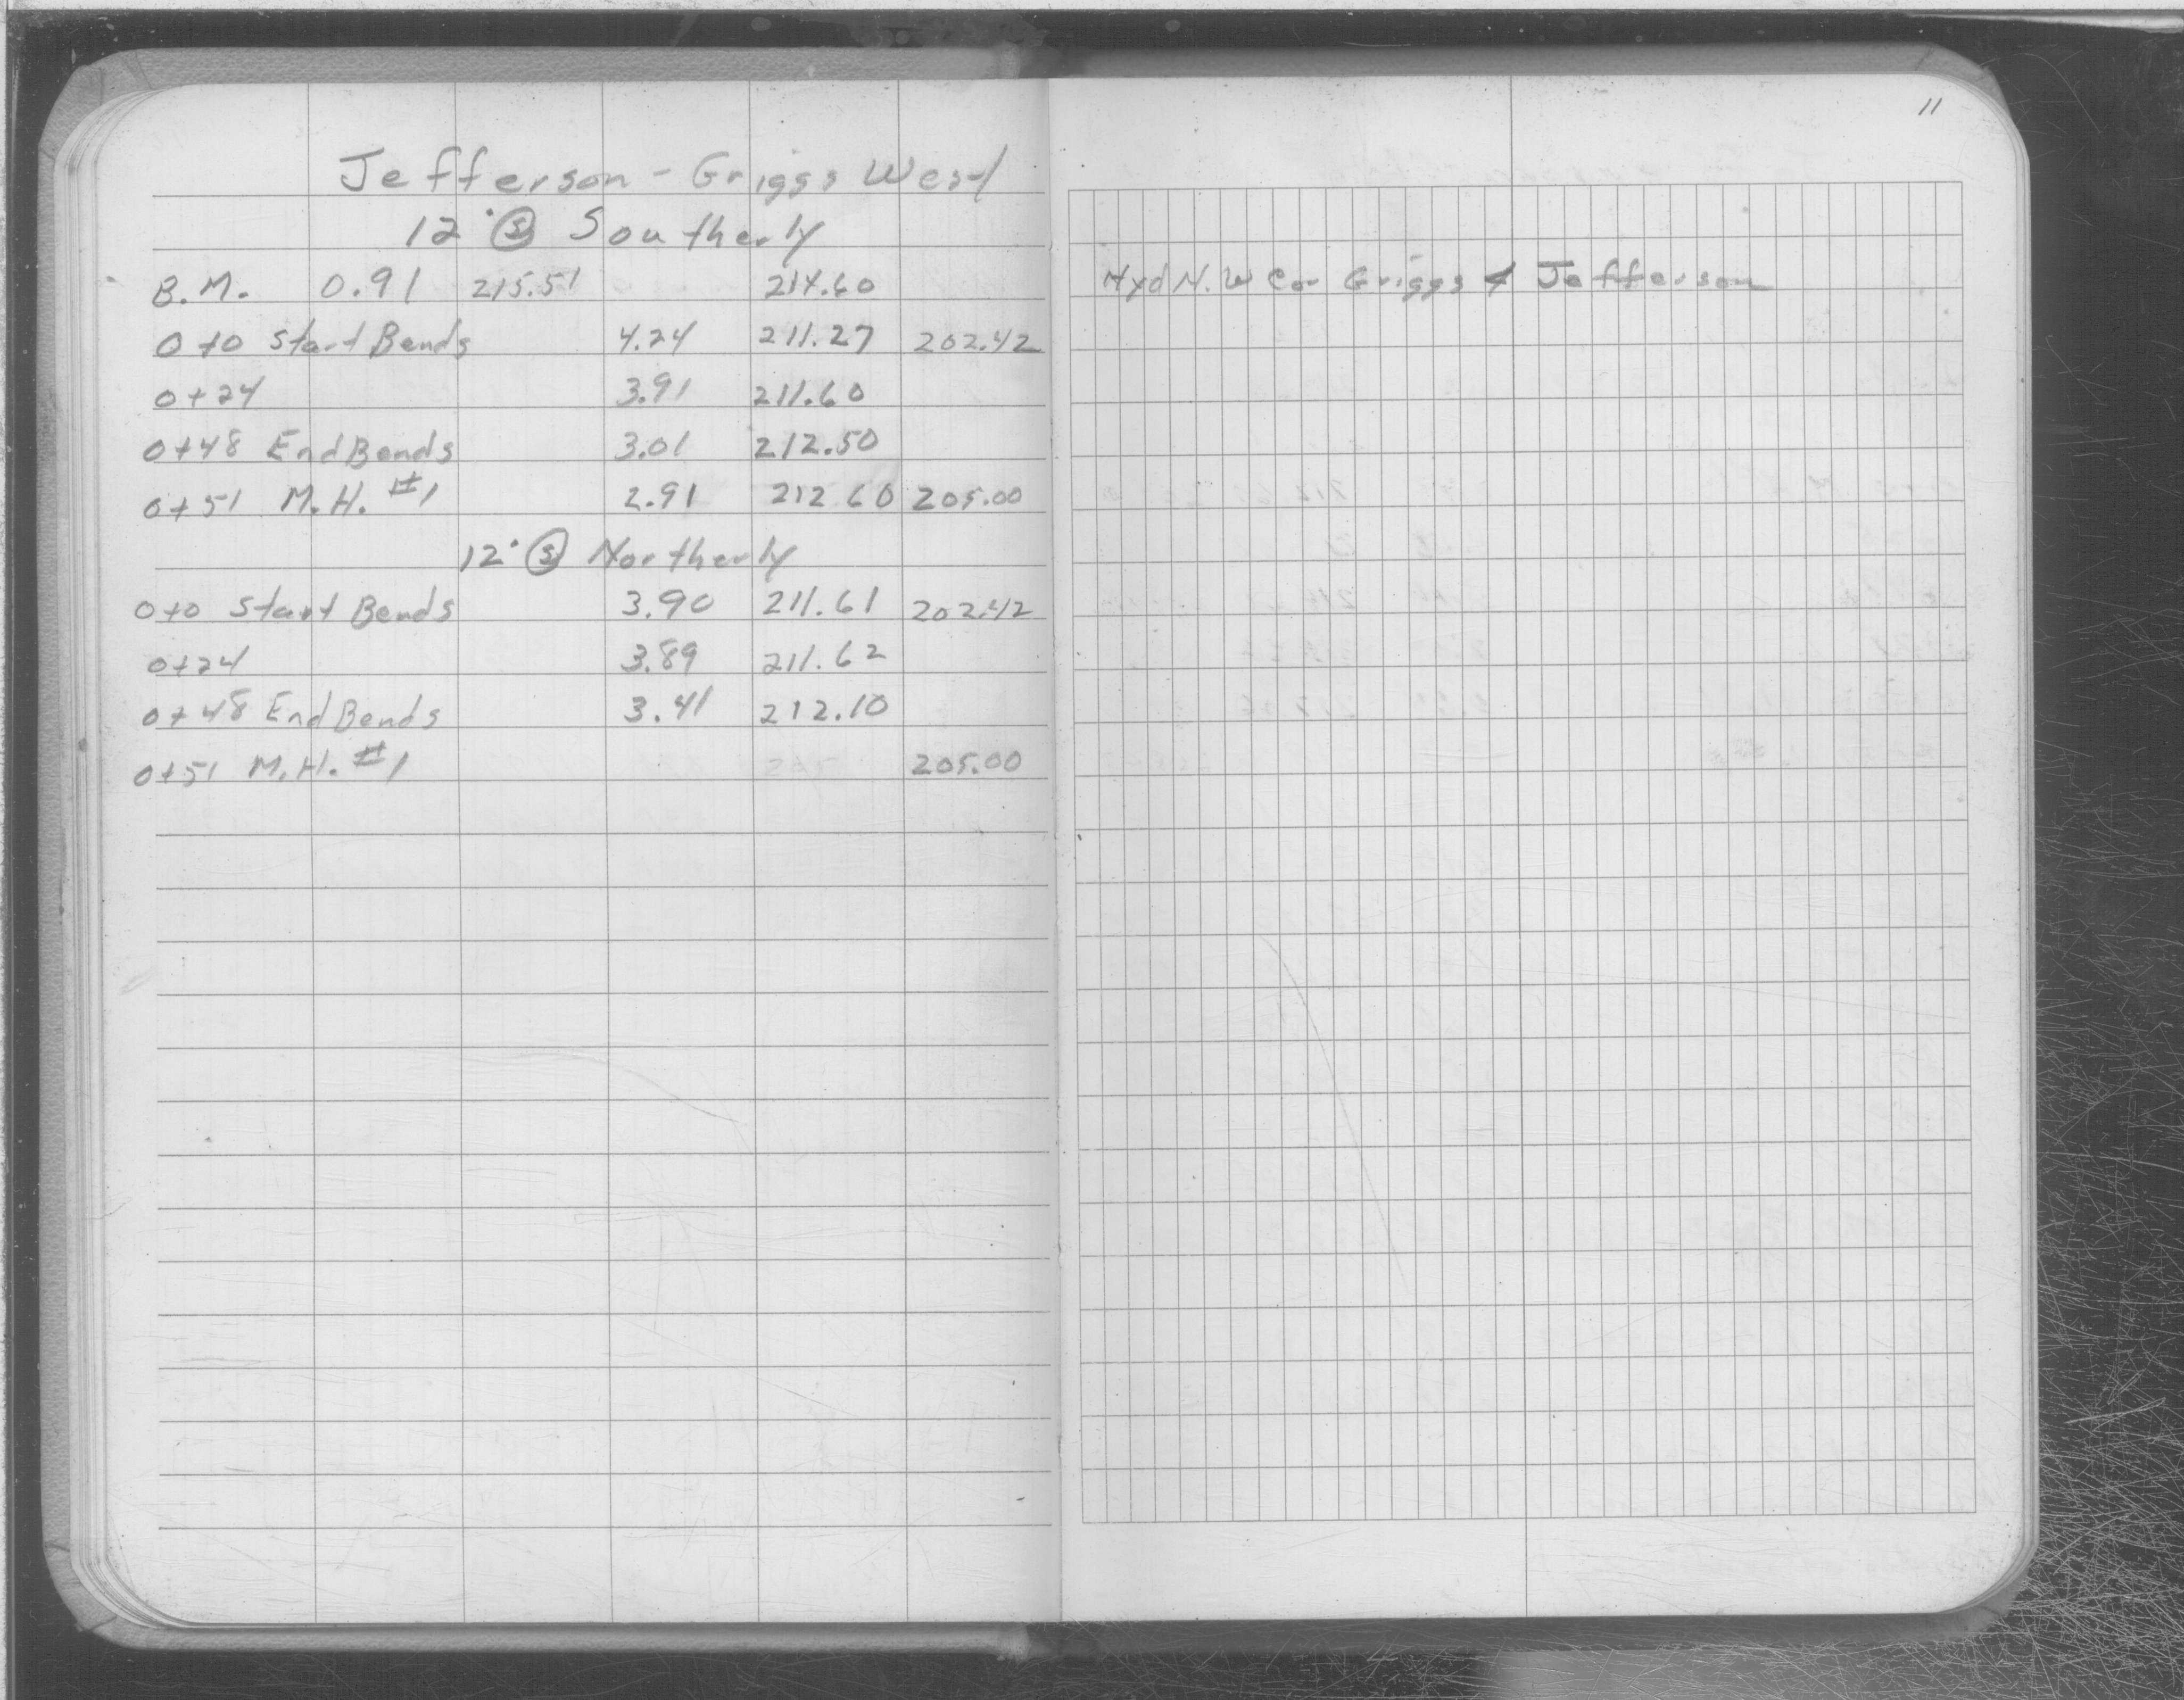 11
Jefferson - Griggs West
12" Ⓢ Southerly
B.M. 0.91 215.51 214.60 Hyd N.W Cor Griggs & Jefferson
0+0 Start Bends 4.24 211.27 202.42
0+24 3.91 211.60
0+48 End Bends 3.01 212.50
0+51 M.H. #1 2.91 212 60 205.00
12" Ⓢ Northerly
0+0 Start Bends 3.90 211.61 202.42
0+24 3.89 211.62
0+48 End Bends 3.41 212.10
0+51 M.H. #1 205.00